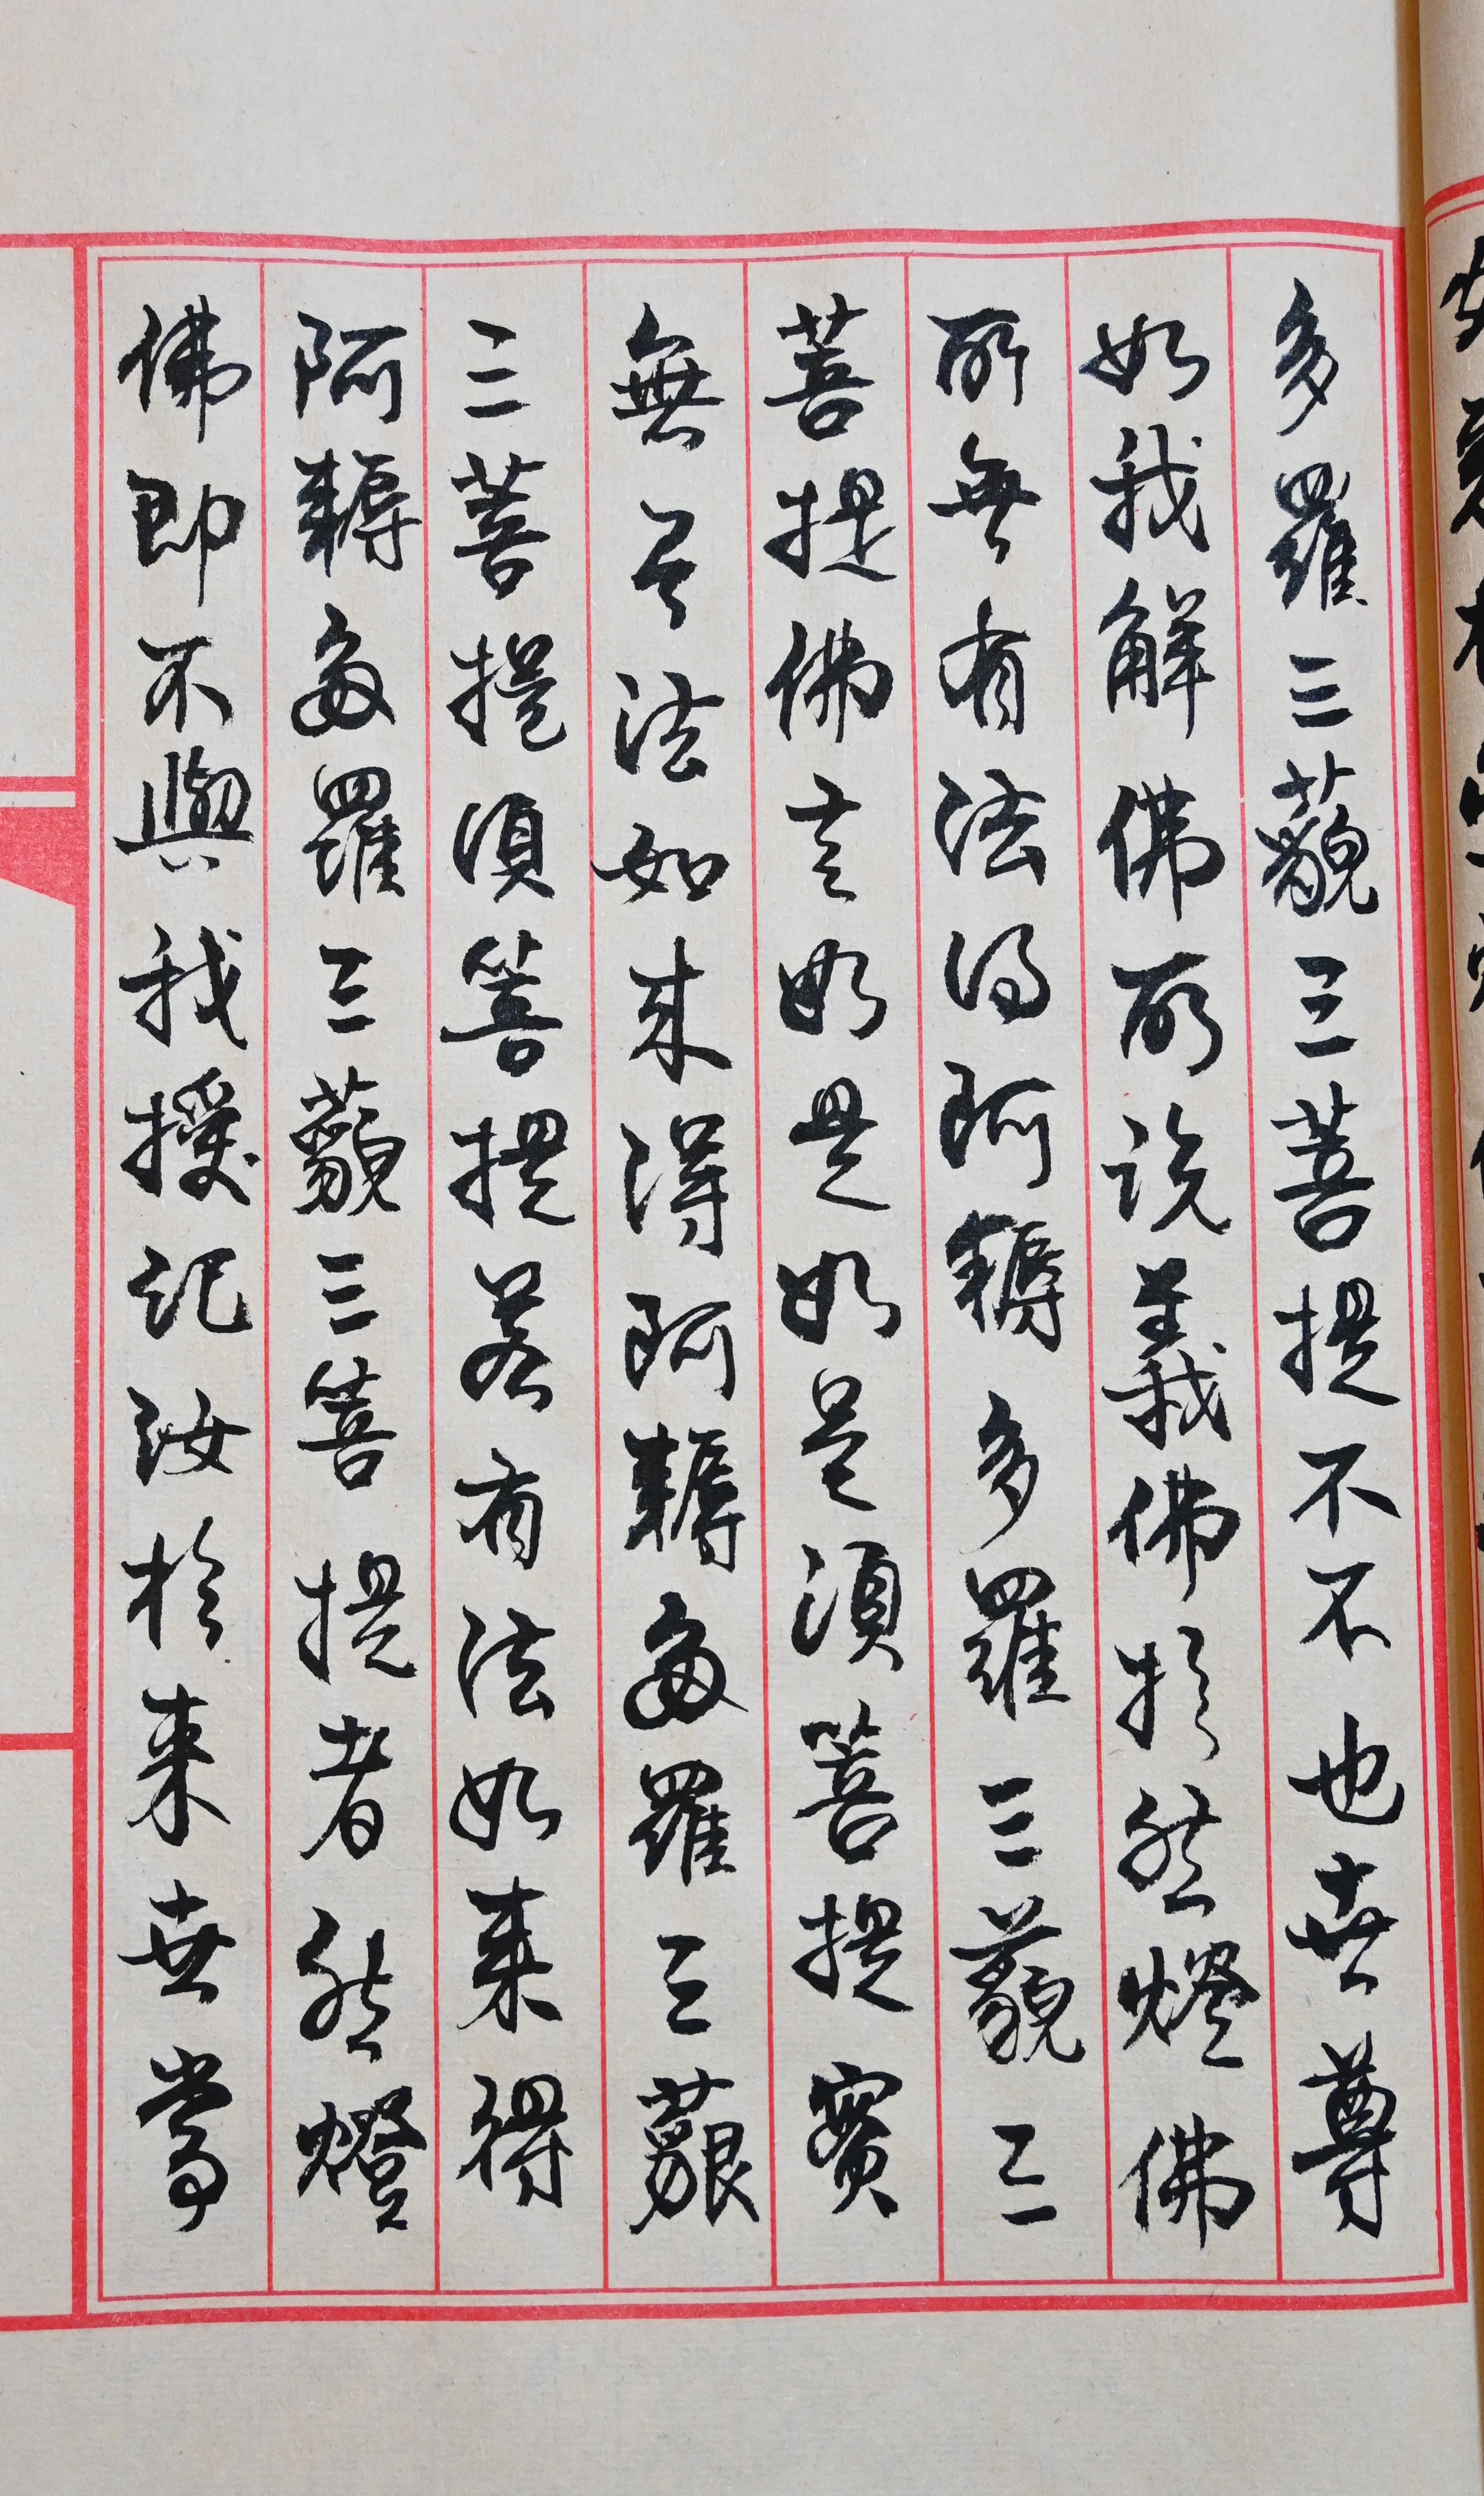 多羅三藐三菩提不不也世尊
如我解佛所說義佛於然燈佛
所無有法得阿耨多羅三藐三
菩提佛言如是如是須菩提實
無有法如来得阿耨多羅三藐
三菩提須菩提若有法如来得
阿耨多羅三藐三菩提者然燈
佛即不與我授記汝於来世當